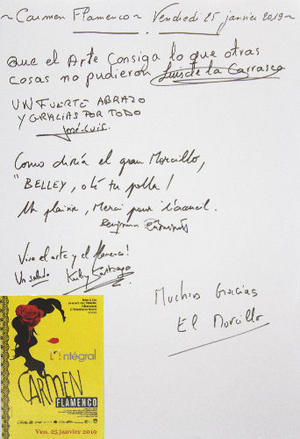 ~ CARMEN FLAMENCO ~ Vendredi 25 janvier 2019 ~
Que el Arte Consiga lo que otras
cosas no pudieron Luis de la Carrasca
UN FUERTE ABRAZO
Y GRACIAS POR TODO
José-Luis.
Como diría el gran Morcillo,
"BELLEY, olé tu polla!
Un plaisir, Merci pour l'accueil.
Viva el arte y el flamenco!
Un saludo
Muchas Gracias
El Morcillo
L'Intégral
CARMEN
FLAMENCO
Ven. 25 janvier 2019